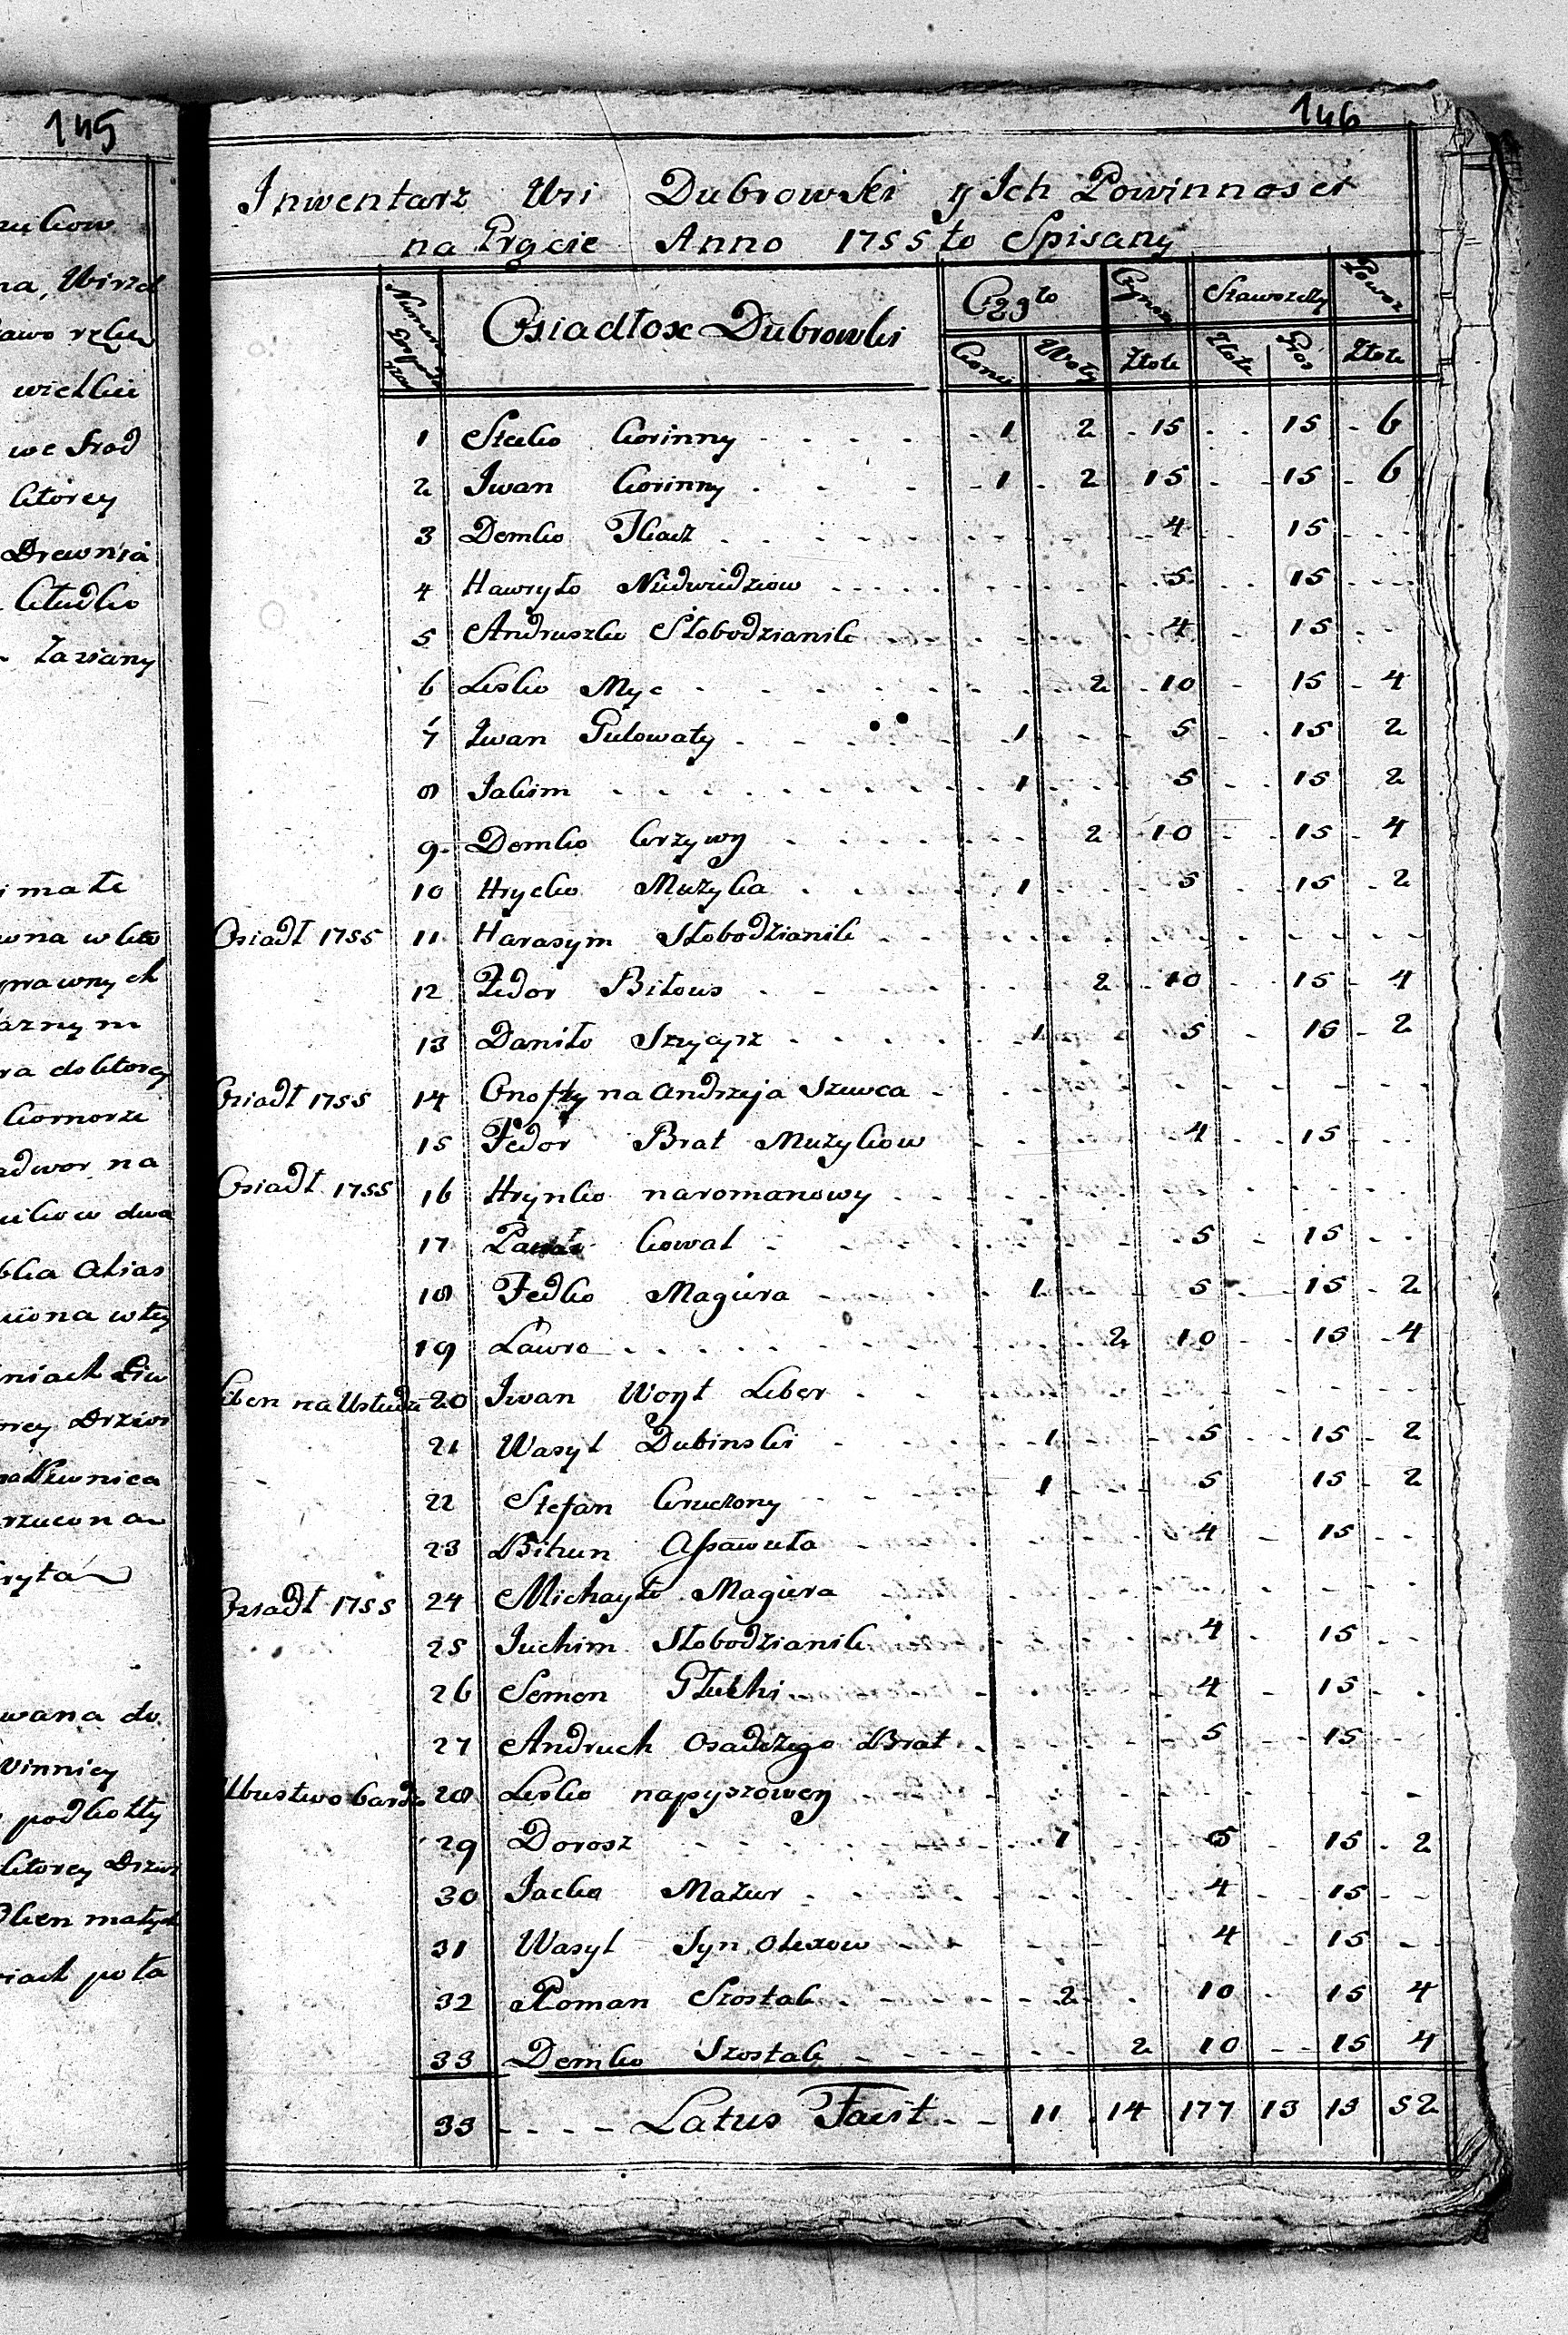 145
146
ukow
na, Wirzch
wielkie
we srod
ktorey
Drewnia
kłudko
zaziany
i małe
prawnych
żarnym
ra do ktorey
komorze
adwor na
ków dwa
bka alias
iona w tey
niach
orey Drzwi
rzucona
wana do
Winnicy
pod kotły
ktorey Drzwi
Inwentarz Wsi Dubrowki y Ich Powinnosci
na Prącie Anno 1755to Spisany
Osiadłosc Dubrowki Cząglo Czynsz Stawszczyz Powoz
Konie Woły Złote Złote Gro Złote
1 Stecko Korinny 1 2 15 15 6
2 Iwan Korinny 1 2 15 15 6
3 Demko Tkacz 4 15
4 Hawryło Niedwiedziow 5 15
5 Andruszko Słobodzianik 4 15
6 Lesko Myc 2 10 15 4
7 Iwan Gulowaty 1 5 15 2
8 Jakim 1 5 15 2
9 Demko Krzywy 2 10 15 4
10 Hrycko Muzyka 1 5 15 2
Osiadł 1755 11 Harasym Słobodzianik
12 Fedor Biłous 2 10 15 4
13 Daniło 1 5 15 2
Osiadł 1755 14 Onofry na Andrzeja Szewca
15 Fedor Brat Muzykow 4 15
Osiadł 1755 16 Hrynko naromanowy
17 Kowal 5 15
18 Fedko Magiera 1 5 15 2
19 Ławro 2 10 15 4
20 Iwan Woyt Liber
21 Wasyl Dubinski 1 5 15 2
22 Stefan Kruczony 1 5 15 2
23 Bihun Assawuła 4 15
Osiadł 1755 24 Michayło Magiera
25 Juchim Słobodzianik 4 15
26 Semen Głuchi 4 15
27 Andruch Osadczego Brat 5 15
Ubustwo bardzo 28 Lesko napyszowey
29 Dorosz 1 5 15 2
30 Jacko Mazur 4 15
31 Wasyl Syn Olexow 4 15
32 Roman Szostak 2 10 15 4
33 Demko Szostak 2 10 15 4
33 Latus Facit 11 14 177 13 13 52